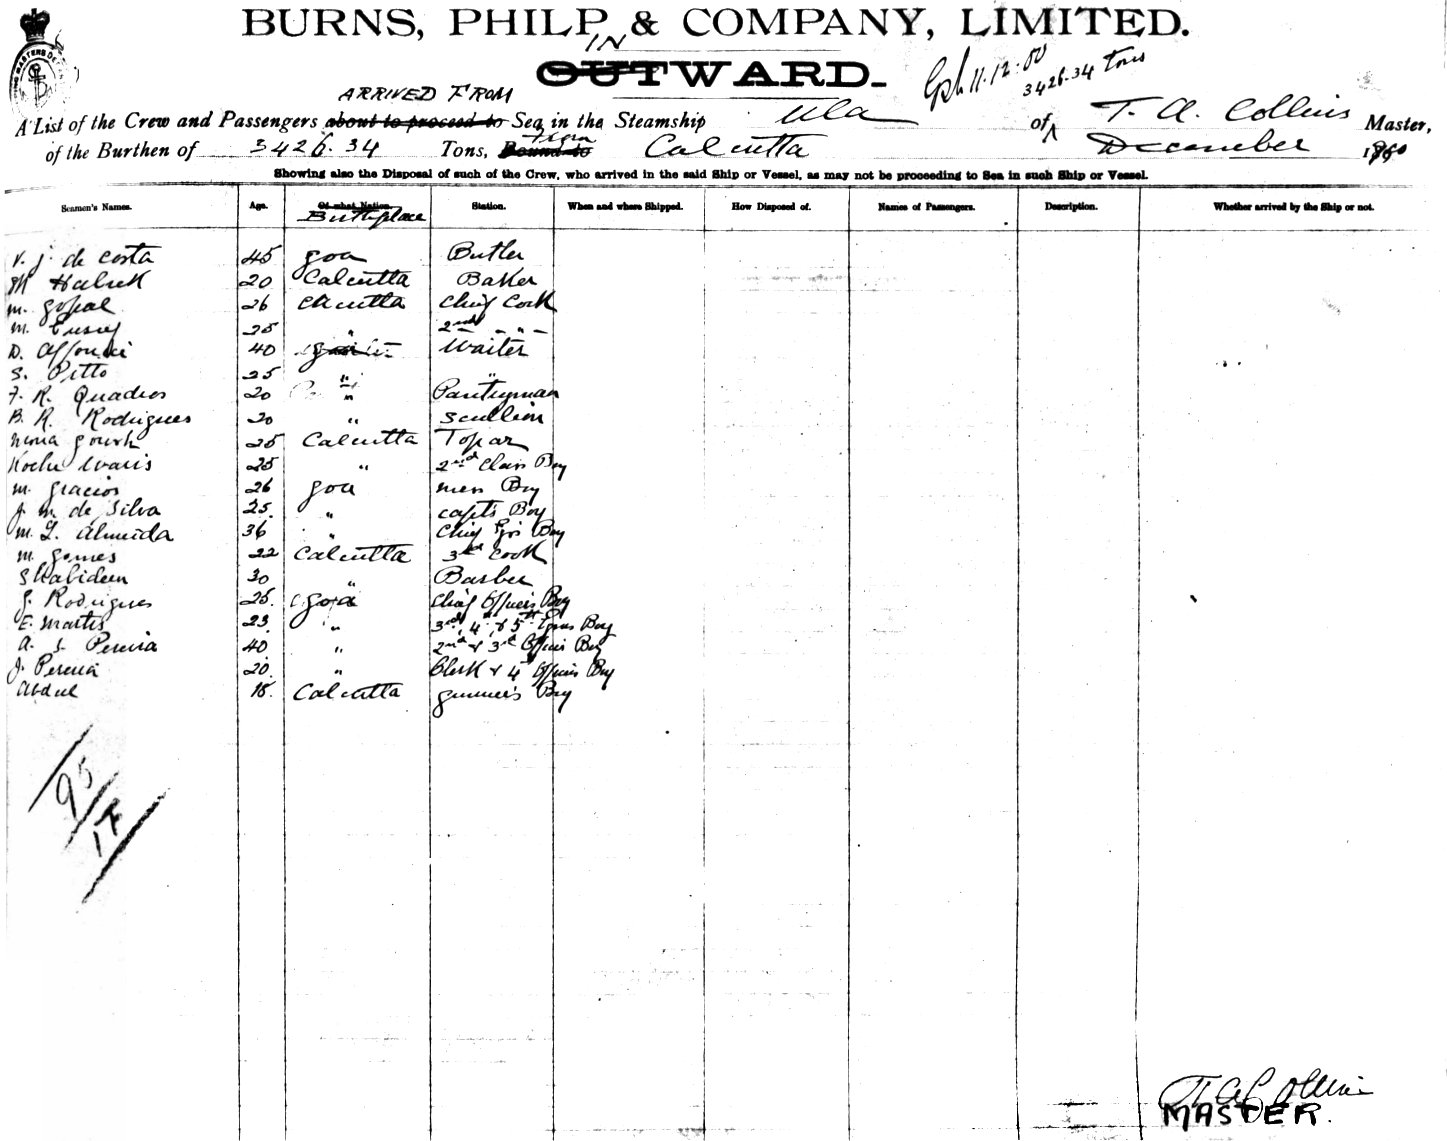 BURNS, PHILP & COMPANY, LIMITED.
IN
OUTWARD.
11.12.00
3426.34 Tons
ARRIVED FROM
A List of the Crew and Passengers about to proceed to Sea in the Steamship Ula of T. A. Collins Master,
from
of the Burthen of 3426.34 Tons, Bound to Calcutta December
Showing also the Disposal of such of the Crew, who arrived in the said Ship or Vessel, as may not be proceeding to Sea in such Ship or Vessel.
Seamen's Names. Age. Of what Nation. Station. When and where Shipped. How Disposed of. Names of Passengers. Description. Whether arrived by the Ship or not.
Birthplace
V. J. de Costa 45 Goa Butler
20 Calcutta Baker
M. Gopal 26 Calcutta Chief Cook
M. 25 " 2nd - " -
D. 40 Waiter
S. Pitto 25 " "
F. R. Quadros 20 " Pantryman
B. R. Rodrigues 20 " Scullion
25 Calcutta Topaz
25 " 2nd Class Boy
M. Gracios 26 Goa Mess Boy
J. M. de Silva 25. " Capt's Boy
M. L. Almeida 36 " Chief Boy
M. Gomes 22 Calcutta 3rd Cook
30 " Barber
J. Rodrigues 25. Goa Chief Officers Boy
E. Martis 23 " 3rd, 4th & 5th Boy
A. S. Pereira 40 " 2nd & 3rd Officers Boy
J. Pereira 20. " Clerk & 4th Officers Boy
Abdul 18. Calcutta Gunner's Boy
95
17
T. A. Collins
MASTER.